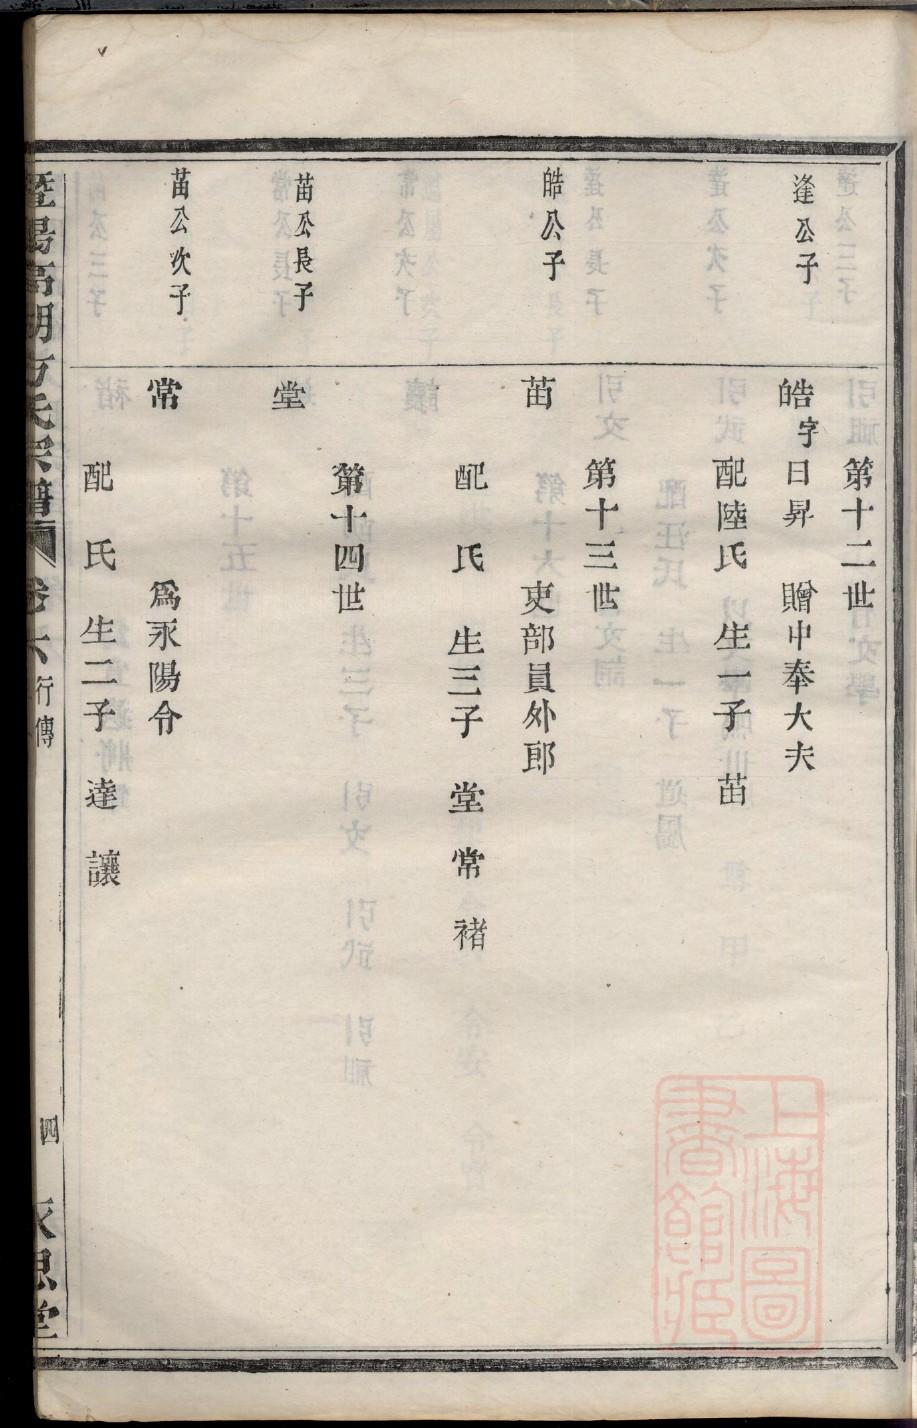 第十二世
逢公子
皓字日昇 贈中奉大夫
配陸氏 生一子 苗
第十三世
皓公子
苗 吏部員外郎
配 氏 生三子 堂 常 禇
第十四世
苗公長子
堂
苗公次子
常 爲永陽令
配 氏 生二子 達 讓
暨陽高湖方氏宗譜 卷六 行傳 四 永思堂
上海圖書館藏